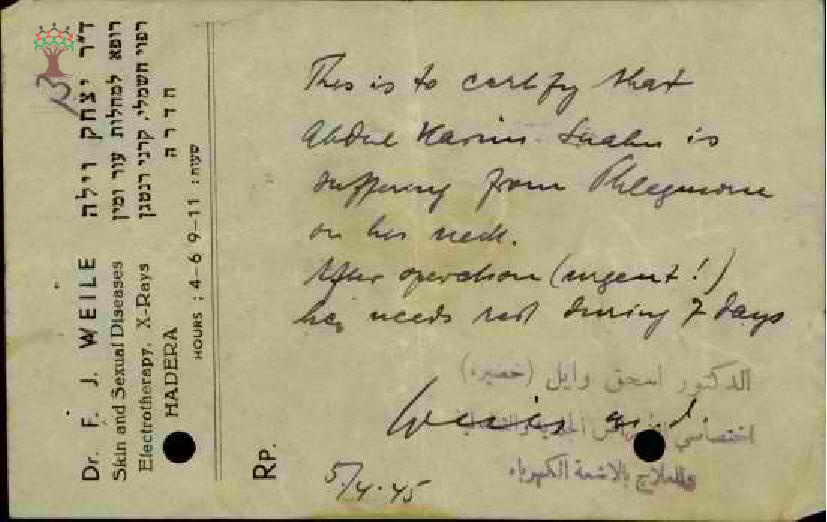 ד״ר יצחק וילה
רופא למחלות עור ומין
רפוי חשמלי, קרני רנטגן
חדרה
שעות:
Dr. F. J. WEILE
Skin and Sexual Diseases
Electrotherapy, X-Rays
HADERA
HOURS : 4–6 9–11
Rp.
This is to certify that
Abdul Karim is
suffering from Phlegmone
on his neck.
After operation (urgent!)
he needs rest during 7 days
m.d.
5/4.45
الدكتور اسحق وايل (خضيره)
اختصاصي
والعلاج بالاشعة الكهرباء